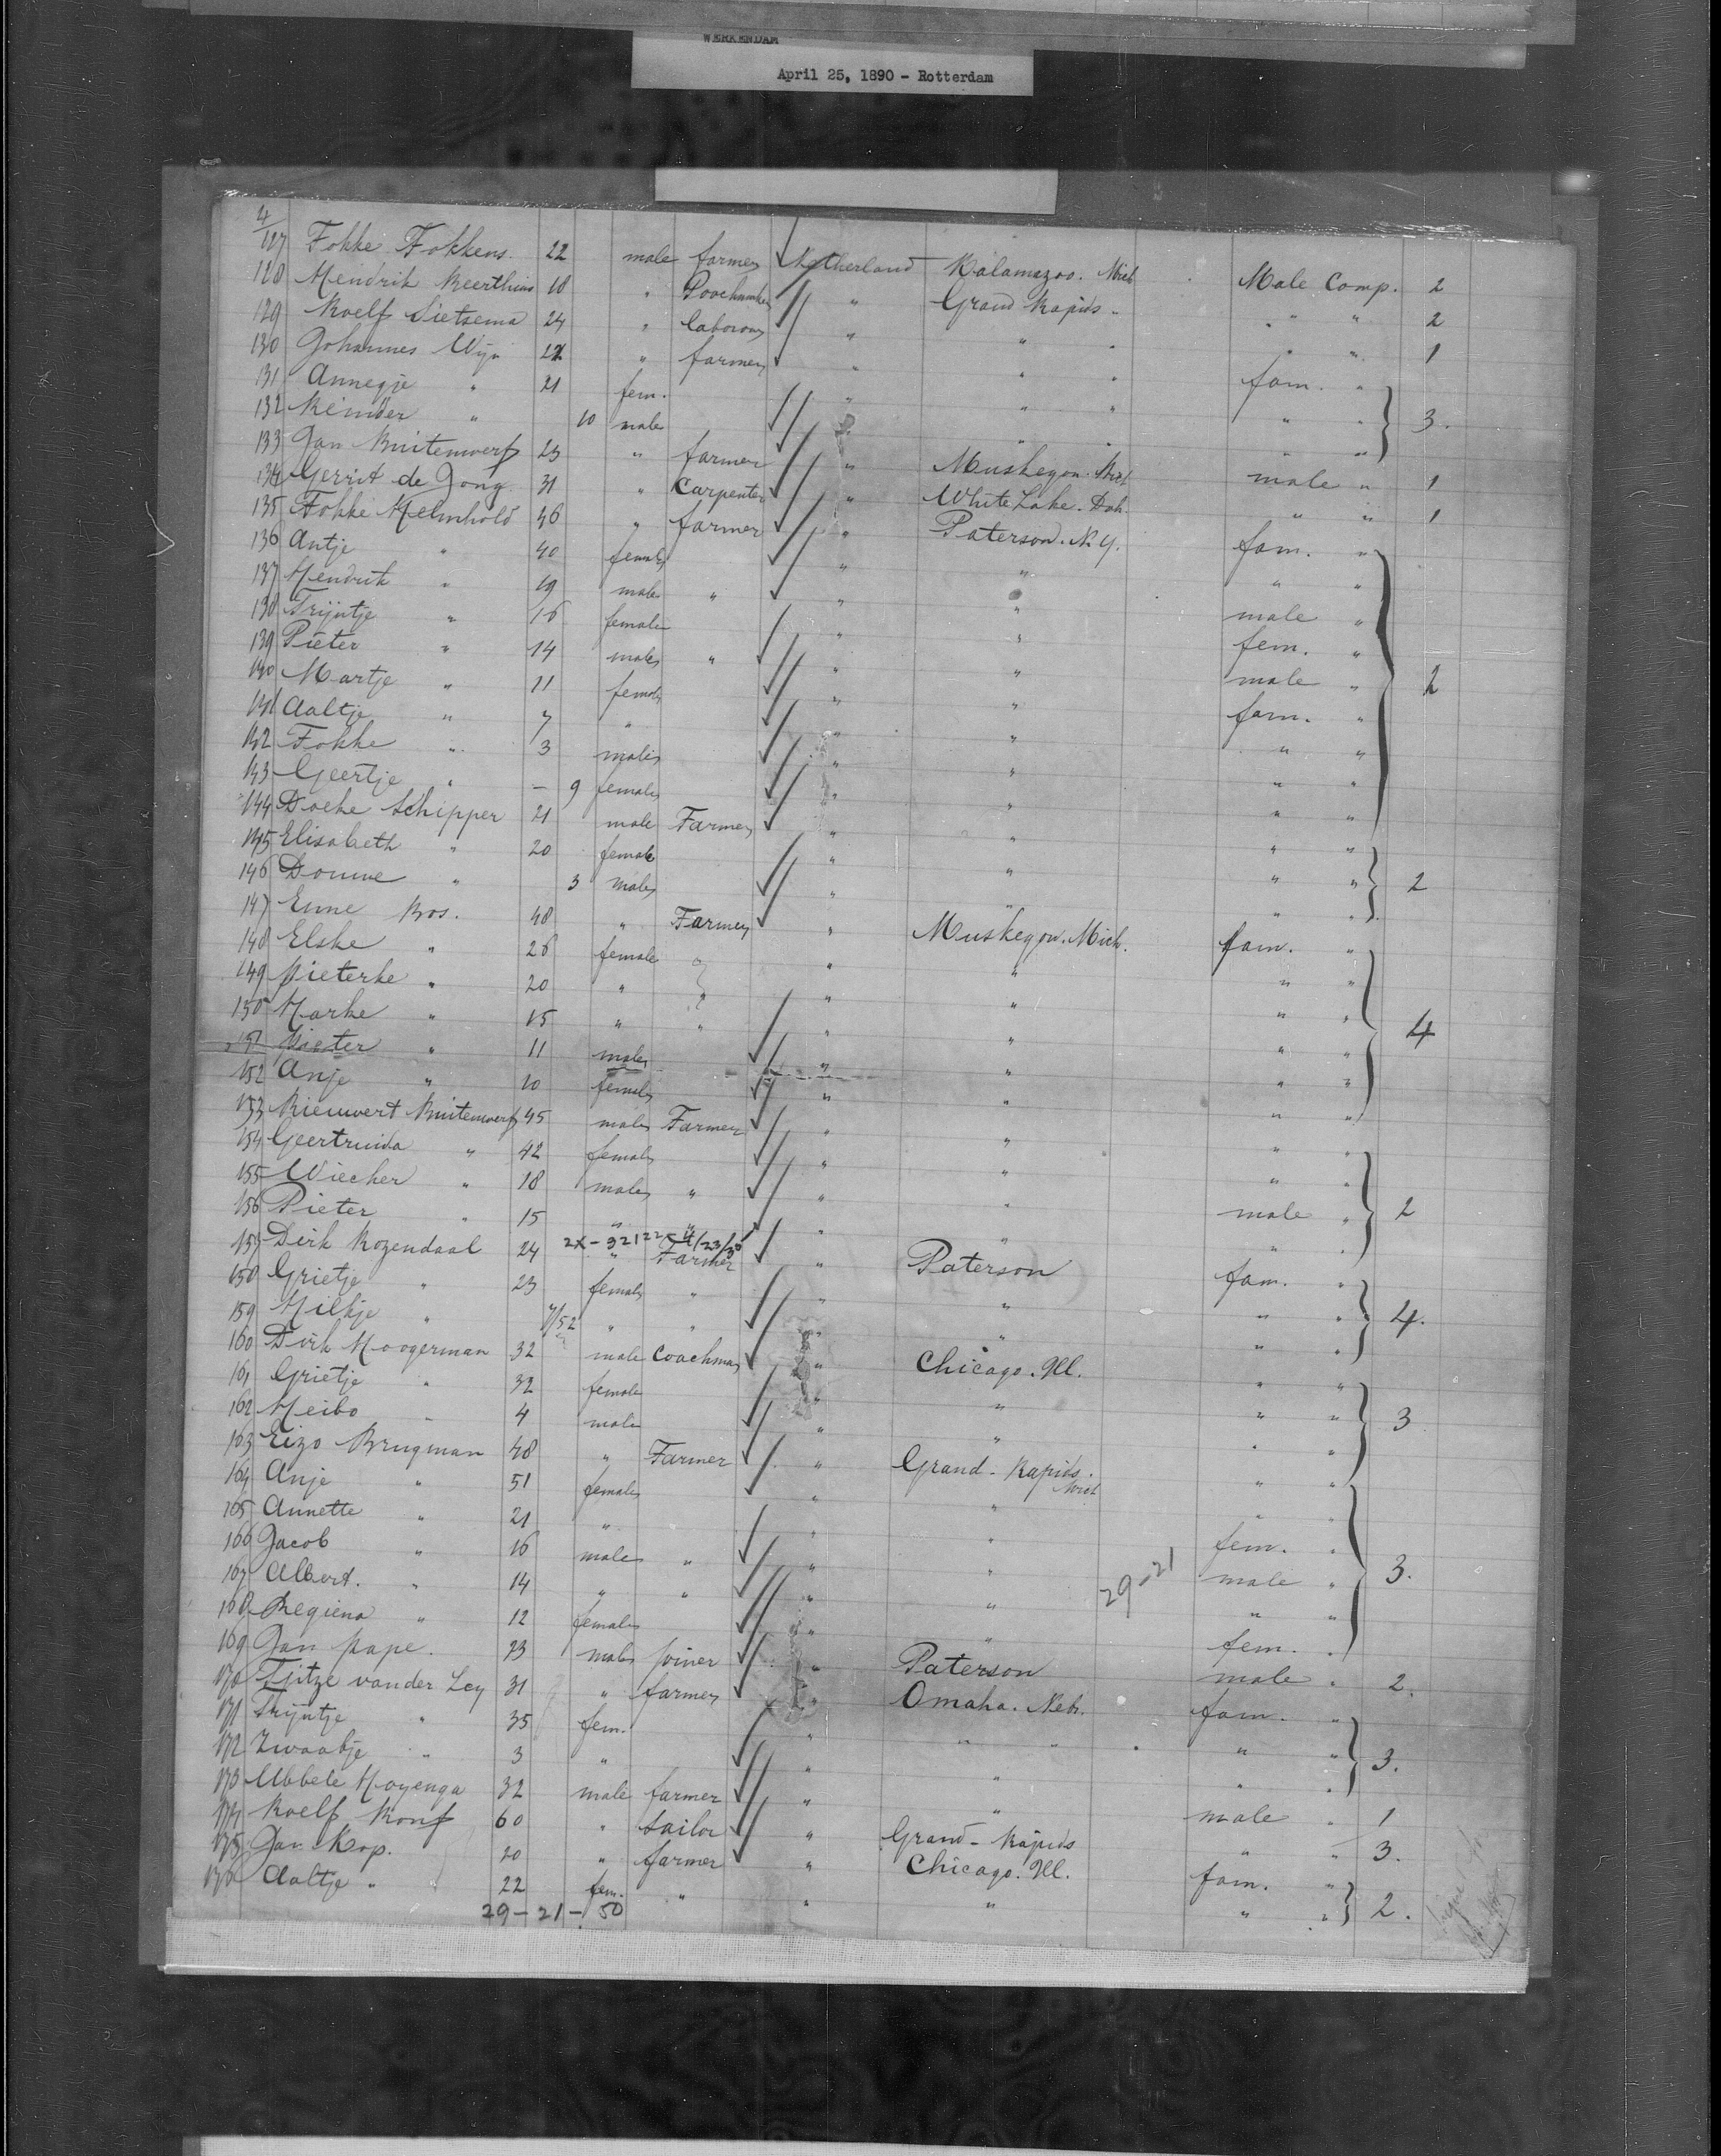 WERKENDAM
April 25, 1890 - Rotterdam
4
127 Fokke Fokkens. 22 male farmer Netherland Kalamazoo. Mich Male Comp. 2
128 Hendrik 18 " " Grand Rapids " " " 2
129 Roelf Sietsema 24 " laborer " " " " " 1
130 Johannes Wijn 22 " farmer " " " fam. "
131 Annegje " 21 fem. " " " " " 3.
132 Reinder " 10 male " " " "
133 Jan Buitenwerf 23 " farmer " Muskegon. Mich male " 1
134 Gerrit de Jong 31 " Carpenter " White Lake. Dak. " " 1
135 Fokke Helmhold 46 " farmer " Paterson. N.Y. fam. "
136 Antje " 40 female " " " "
137 Hendrik " 19 male " " " male "
138 Trijntje " 16 female " " fem. "
139 Pieter " 14 male " " " male " 2
140 Martje " 11 female " " fam. "
141 Aaltje " 7 " " " " "
142 Fokke " 3 male " " " "
143 Geertje " – 9 female " " " "
144 Doeke Schipper 21 male Farmer " " " "
145 Elisabeth " 20 female " " " " 2
146 Douwe " 3 male " " " "
147 Enne Bos. 48 " Farmer " Muskegon. Mich. fam. "
148 Elske " 26 female " " " " "
149 Pieterke " 20 " " " " " "
150 Harke " 15 " " " " " " 4
151 Pieter " 11 male " " " "
152 Anje " 10 female " " " "
153 Rieuwert Buitenwerf 45 male Farmer " " " "
154 Geertruida " 42 female " " " "
155 Wiecher " 18 male " " " male " 2
156 Pieter " 15 " " " " " "
2X-32122-4/23/30
157 Dirk Rozendaal 24 " Farmer " Paterson fam. "
158 Grietje " 23 female " " " " " 4.
159 " 7/52 " " " " " "
160 Dirk Hoogerman 32 male Coachman " Chicago. Ill. " "
161 Grietje " 32 female " " " " 3
162 Meibo " 4 male " " " "
163 Eizo Brugman 48 " Farmer " Grand-Rapids. Mich " "
164 Anje " 51 female " " " "
165 Annette " 21 " " " fem. "
166 Jacob " 16 male " " " male " 3.
167 Albert. " 14 " " " " " "
168 Regiena " 12 female " " fem. "
29-21
169 Jan Pape. 23 male joiner " Paterson male " 2.
170 Tjitze van der Ley 31 " farmer " Omaha. Nebr. fam. "
171 Trijntje " 35 fem. " " " " " 3.
172 Zwaabje " 3 " " " " "
173 Ubbele Hoyenga 32 male farmer " " male " 1
174 Roelf 60 " sailor " Grand-Rapids " " 3.
175 Jan Kop. 20 " farmer " Chicago. Ill. fam. "
176 Aaltje " 22 fem. " " " " " 2.
29-21-50